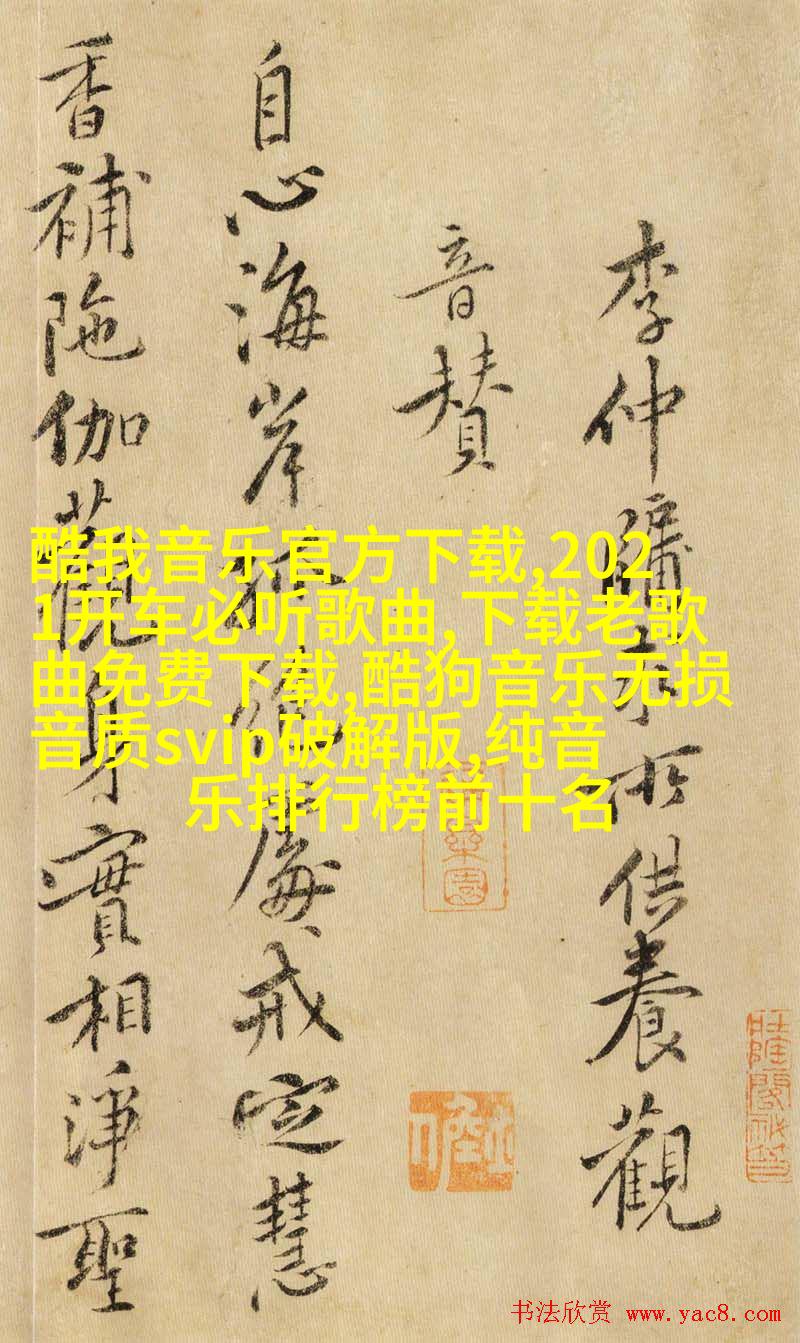 李仲牖所供養觀
音賛
自心海岸孤絶處戒定慧
香補陁伽觀身實相淨聖
酷我音乐官方下载,202
1开车必听歌曲,下载老歌
曲免费下载,酷狗音乐无损
音质svip破解版,纯音
乐排行榜前十名
书法欣赏 www.yac8.com